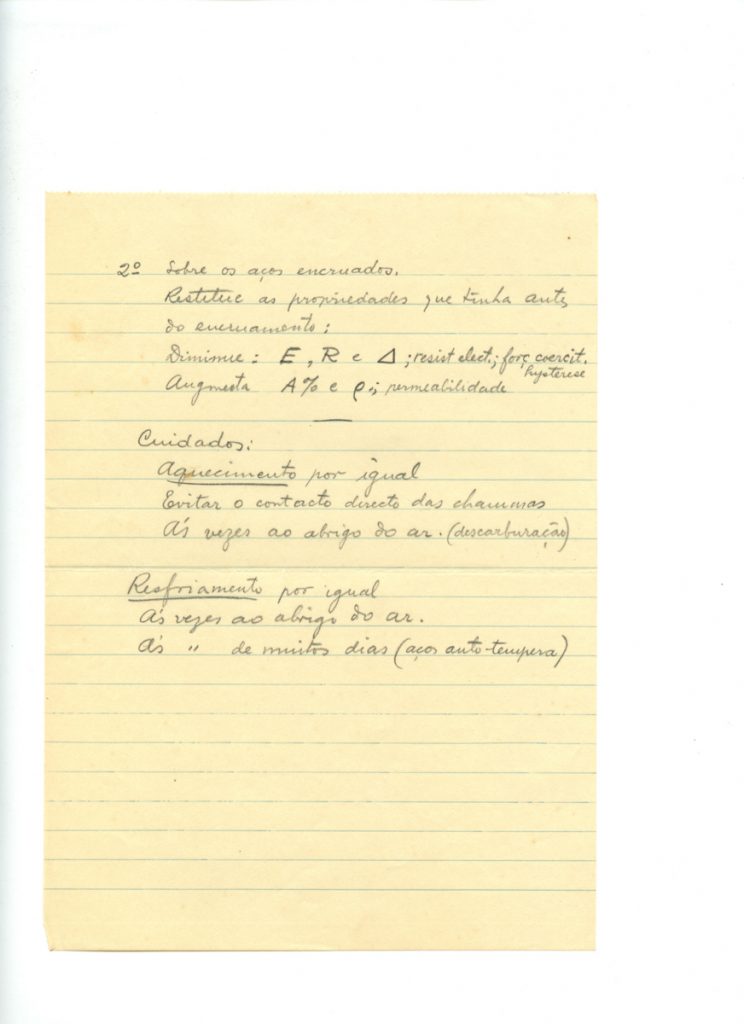 2º Sobre os aços encruados.
Restitue as propriedades que tinha antes
do encruamento:
Diminue: E, R e Δ; resist elect.; forç coercit.
hysterese
Augmenta A% e ρ; permeabilidade
Cuidados:
Aquecimento por igual
Evitar o contacto directo das chammas
Ás vezes ao abrigo do ar. (descarburação)
Resfriamento por igual
Ás vezes ao abrigo do ar.
Ás " de muitos dias (aços auto-tempera)